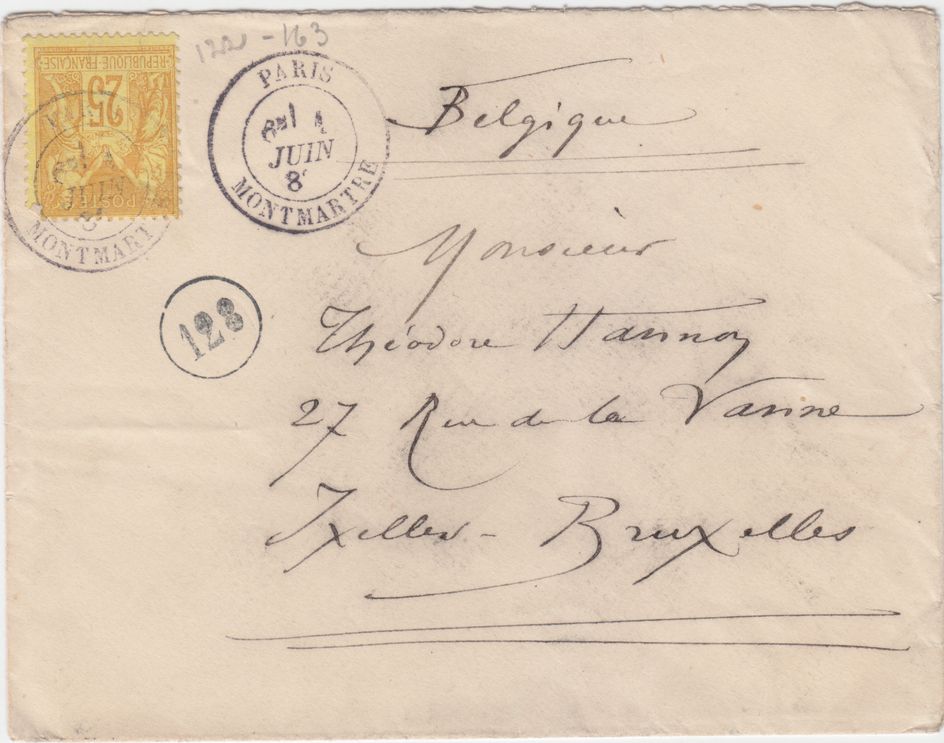 1221-163
REPUBLIQUE FRANÇAISE
25
POSTES
PARIS
1
JUIN
8
MONTMARTRE
JUIN
MONTMARTRE
128
Belgique
Monsieur
Théodore Hannon
27 Rue de la Vanne
Ixelles - Bruxelles